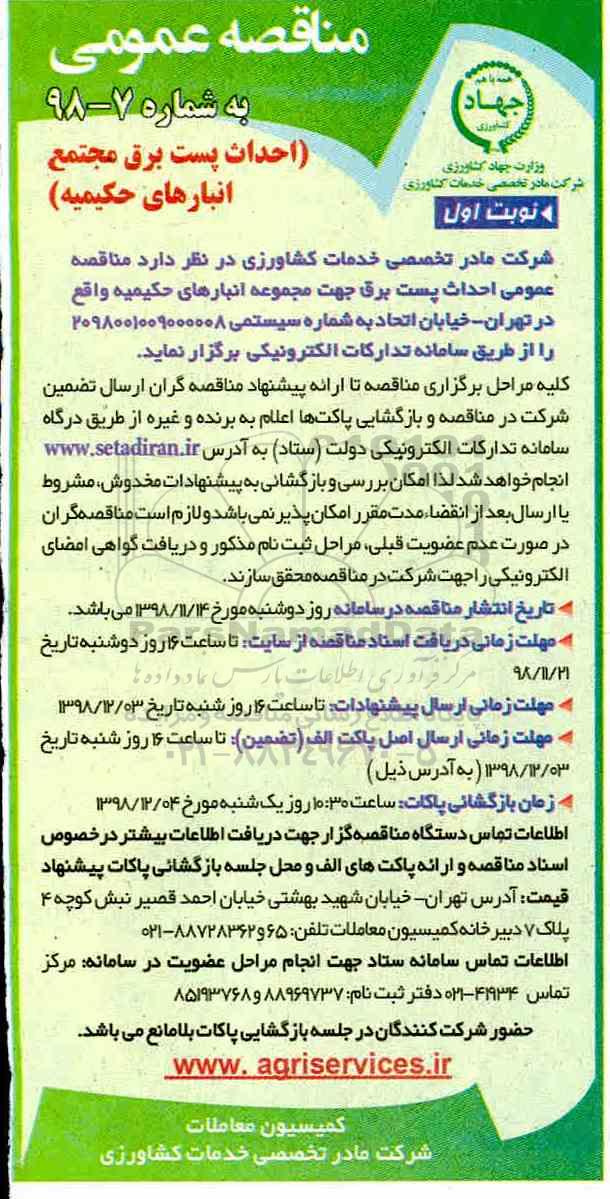 مناقصه عمومی
به شماره ۷-۹۸
(احداث پست برق مجتمع
انبارهای حکیمیه)
همه با هم
جهاد
کشاورزی
وزارت جهاد کشاورزی
شرکت مادر تخصصی خدمات کشاورزی
نوبت اول
شرکت مادر تخصصی خدمات کشاورزی در نظر دارد مناقصه
عمومی احداث پست برق جهت مجموعه انبارهای حکیمیه واقع
در تهران-خیابان اتحاد به شماره سیستمی ۲۰۹۸۰۰۱۰۰۹۰۰۰۰۰۸
را از طریق سامانه تدارکات الکترونیکی برگزار نماید.
کلیه مراحل برگزاری مناقصه تا ارائه پیشنهاد مناقصه گران ارسال تضمین
شرکت در مناقصه و بازگشایی پاکت‌ها اعلام به برنده و غیره از طریق درگاه
سامانه تدارکات الکترونیکی دولت (ستاد) به آدرس www.setadiran.ir
انجام خواهد شد لذا امکان بررسی و بازگشائی به پیشنهادات مخدوش، مشروط
یا ارسال بعد از انقضاء مدت مقرر امکان پذیر نمی باشد و لازم است مناقصه گران
در صورت عدم عضویت قبلی، مراحل ثبت نام مذکور و دریافت گواهی امضای
الکترونیکی را جهت شرکت در مناقصه محقق سازند.
تاریخ انتشار مناقصه در سامانه روز دوشنبه مورخ ۱۳۹۸/۱۱/۱۴ می باشد.
مهلت زمانی دریافت اسناد مناقصه از سایت: تا ساعت ۱۶ روز دوشنبه تاریخ
۹۸/۱۱/۲۱
مهلت زمانی ارسال پیشنهادات: تا ساعت ۱۶ روز شنبه تاریخ ۱۳۹۸/۱۲/۰۳
مهلت زمانی ارسال اصل پاکت الف (تضمین): تا ساعت ۱۶ روز شنبه تاریخ
۱۳۹۸/۱۲/۰۳ ( به آدرس ذیل )
زمان بازگشائی پاکات: ساعت ۱۰:۳۰ روز یک شنبه مورخ ۱۳۹۸/۱۲/۰۴
اطلاعات تماس دستگاه مناقصه گزار جهت دریافت اطلاعات بیشتر در خصوص
اسناد مناقصه و ارائه پاکت های الف و محل جلسه بازگشائی پاکات پیشنهاد
قیمت: آدرس تهران- خیابان شهید بهشتی خیابان احمد قصیر نبش کوچه ۴
پلاک ۷ دبیرخانه کمیسیون معاملات تلفن: ۶۵ و ۸۸۷۲۸۳۶۲-۰۲۱
اطلاعات تماس سامانه ستاد جهت انجام مراحل عضویت در سامانه: مرکز
تماس ۴۱۹۳۴-۰۲۱ دفتر ثبت نام: ۸۸۹۶۹۷۳۷ و ۸۵۱۹۳۷۶۸
حضور شرکت کنندگان در جلسه بازگشایی پاکات بلامانع می باشد.
www. agriservices.ir
کمیسیون معاملات
شرکت مادر تخصصی خدمات کشاورزی